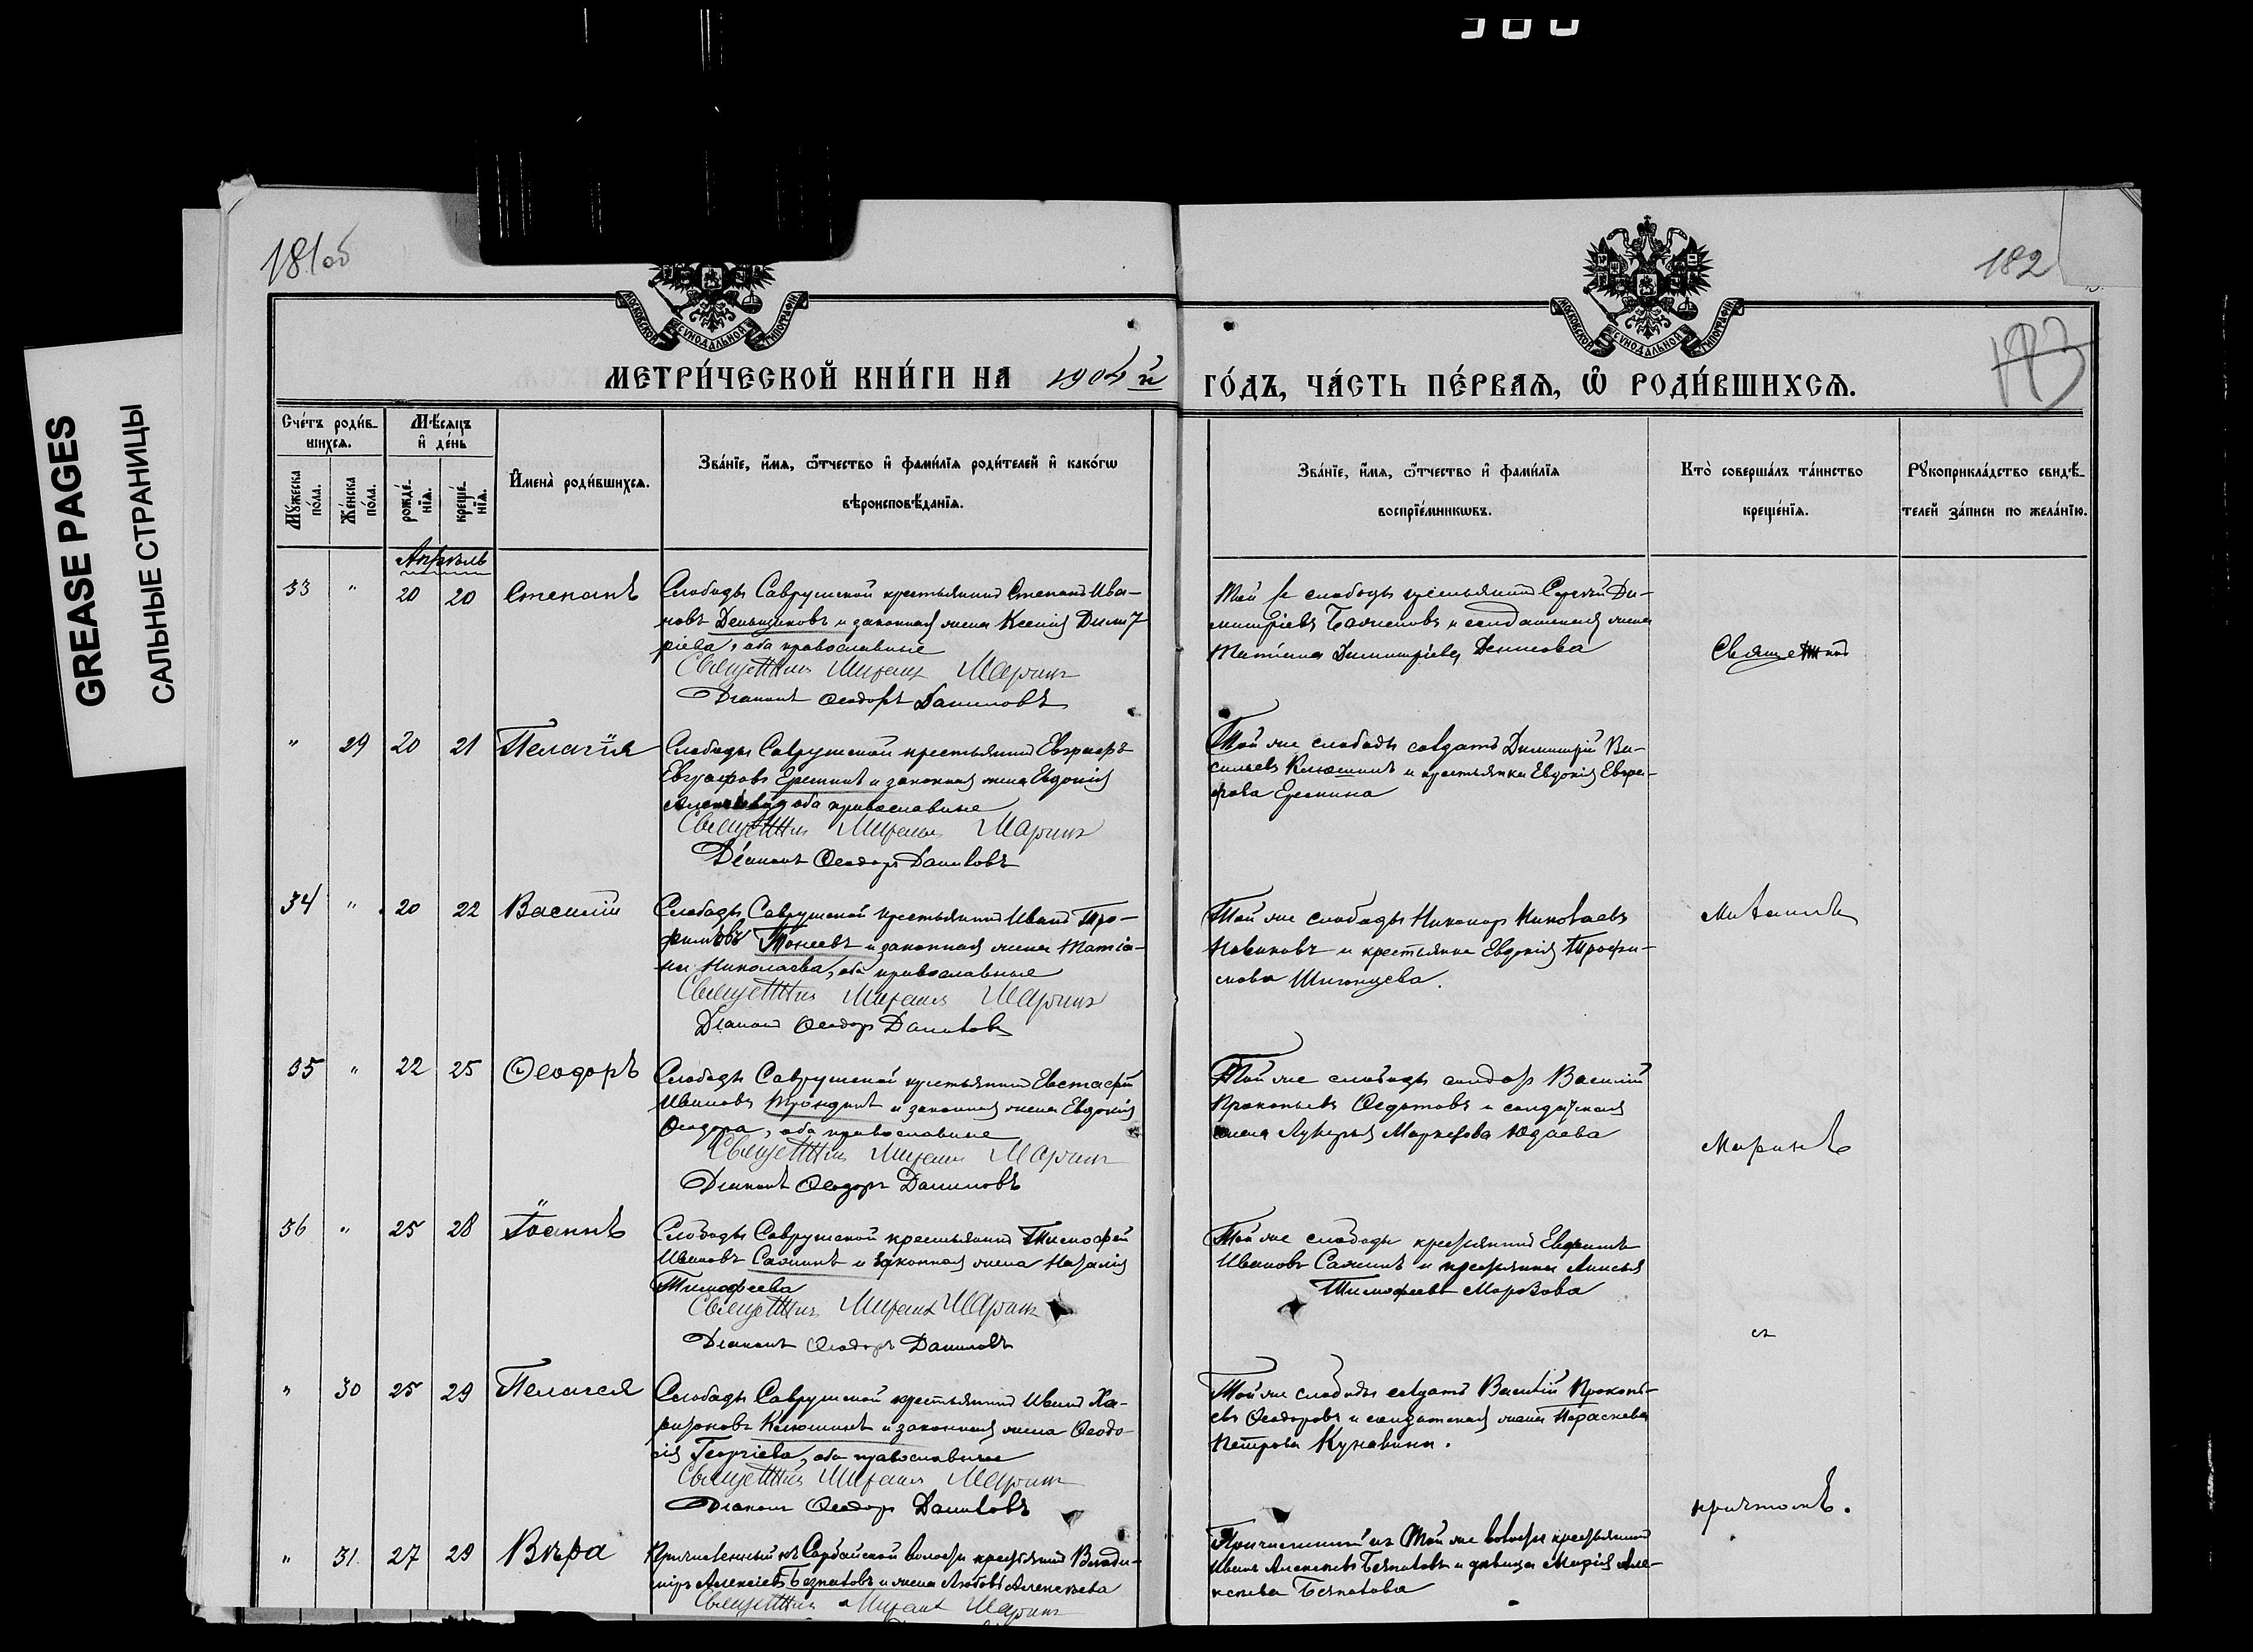 GREASE PAGES
САЛЬНЫЕ СТРАНИЦЫ
181об
182
МОСКОВСКОЙ СУНОДАЛЬНОЙ ТИПОГРАФІИ
МОСКОВСКОЙ СУНОДАЛЬНОЙ ТИПОГРАФІИ
МЕТРИ́ЧЕСКОЙ КНИ́ГИ НА 1904й ГО́ДЪ, ЧА́СТЬ ПЕ́РВАЯ, Ѿ РОДИ́ВШИХСЯ.
Сче́тъ роди́в-
шихся.
Мꙋжеска по́ла.
Же́нска по́ла.
Мѣ́сяцъ
и҆ де́нь
рожде́-
нїя.
креще́-
нїя.
И҆мена̀ роди́вшихся.
Зва́нїе, и҆́мя, ѻ҆́тчество и҆ фами́лїя роди́телей и҆ како́гѡ
вѣроисповѣ́данїя.
Зва́нїе, и҆́мя, ѻ҆́тчество и҆ фами́лїя
воспрїе́мникѡвъ.
Кто̀ соверша́лъ та́инство
креще́нїя.
Рꙋкоприкла́дство свидѣ́-
телей за́писи по жела́нїю.
Апрѣль
33 " 20 20 Степанъ
Слободы Саврушской крестьянинъ Степанъ Ива-
новъ Деньщиковъ и законная жена Ксенія Димит-
ріева, оба православные
Священникъ Михаилъ Маринъ
Діаконъ Ѳеодоръ Даниловъ
Той же слободы крестьянинъ Сергѣй Ди-
митріевъ и солдатская жена
Татіана Димитріева Денисова
Священникъ
" 29 20 21 Пелагія
Слободы Саврушской крестьянинъ Евграфъ
Евграфовъ Еремин и законная жена Евдокія
Алексѣева, оба православные
Священникъ Михаилъ Маринъ
Діаконъ Ѳеодоръ Даниловъ
Той же слободы солдатъ Димитрій Ва-
сильевъ Клюшинъ и крестьянка Евдокія Евгра-
фова
34 " 20 22 Василій
Слободы Саврушской крестьянинъ Иванъ Тро-
фимовъ Мокеевъ и законная жена Татіа-
на Николаева, оба православные
Священникъ Михаилъ Маринъ
Діаконъ Ѳеодоръ Даниловъ
Той же слободы Никаноръ Николаевъ
Новиковъ и крестьянка Евдокія Трофи-
мова
Михаилъ
35 " 22 25 Ѳеодоръ
Слободы Саврушской крестьянинъ Евстафій
Ивановъ и законная жена Евдокія
Ѳеодора, оба православные
Священникъ Михаилъ Маринъ
Діаконъ Ѳеодоръ Даниловъ
Той же слободы солдатъ Василій
Прокопьевъ Ѳедотовъ и солдатская
жена Лукерья Юдаева
Маринъ
36 " 25 28 Іоаннъ
Слободы Саврушской крестьянинъ Тимофей
Ивановъ Сажинъ и законная жена Наталія
Тимофеева
Священникъ Михаилъ Маринъ
Діаконъ Ѳеодоръ Даниловъ
Той же слободы крестьянинъ Евфимъ
Ивановъ Сажинъ и крестьянка Анисья
Тимофеева Морозова
съ
" 30 25 29 Пелагея
Слободы Саврушской крестьянинъ Иванъ Ха-
ритоновъ Клюшинъ и законная жена Ѳеодо-
сія Георгіева, оба православные
Священникъ Михаилъ Маринъ
Діаконъ Ѳеодоръ Даниловъ
Той же слободы солдатъ Василій Прокопь-
евъ Ѳеодоровъ и солдатская жена Параскева
Петрова Кунавина.
причтомъ.
" 31 27 29 Вѣра
Причисленный къ Сарбайской волости крестьянинъ Влади-
міръ Алексѣевъ Безпаловъ и жена Любовь Алексѣева
Священникъ Михаилъ Маринъ
Причисленный къ той же волости крестьянинъ
Иванъ Алексѣевъ Безпаловъ и дѣвица Марія Але-
ксѣева Безпалова